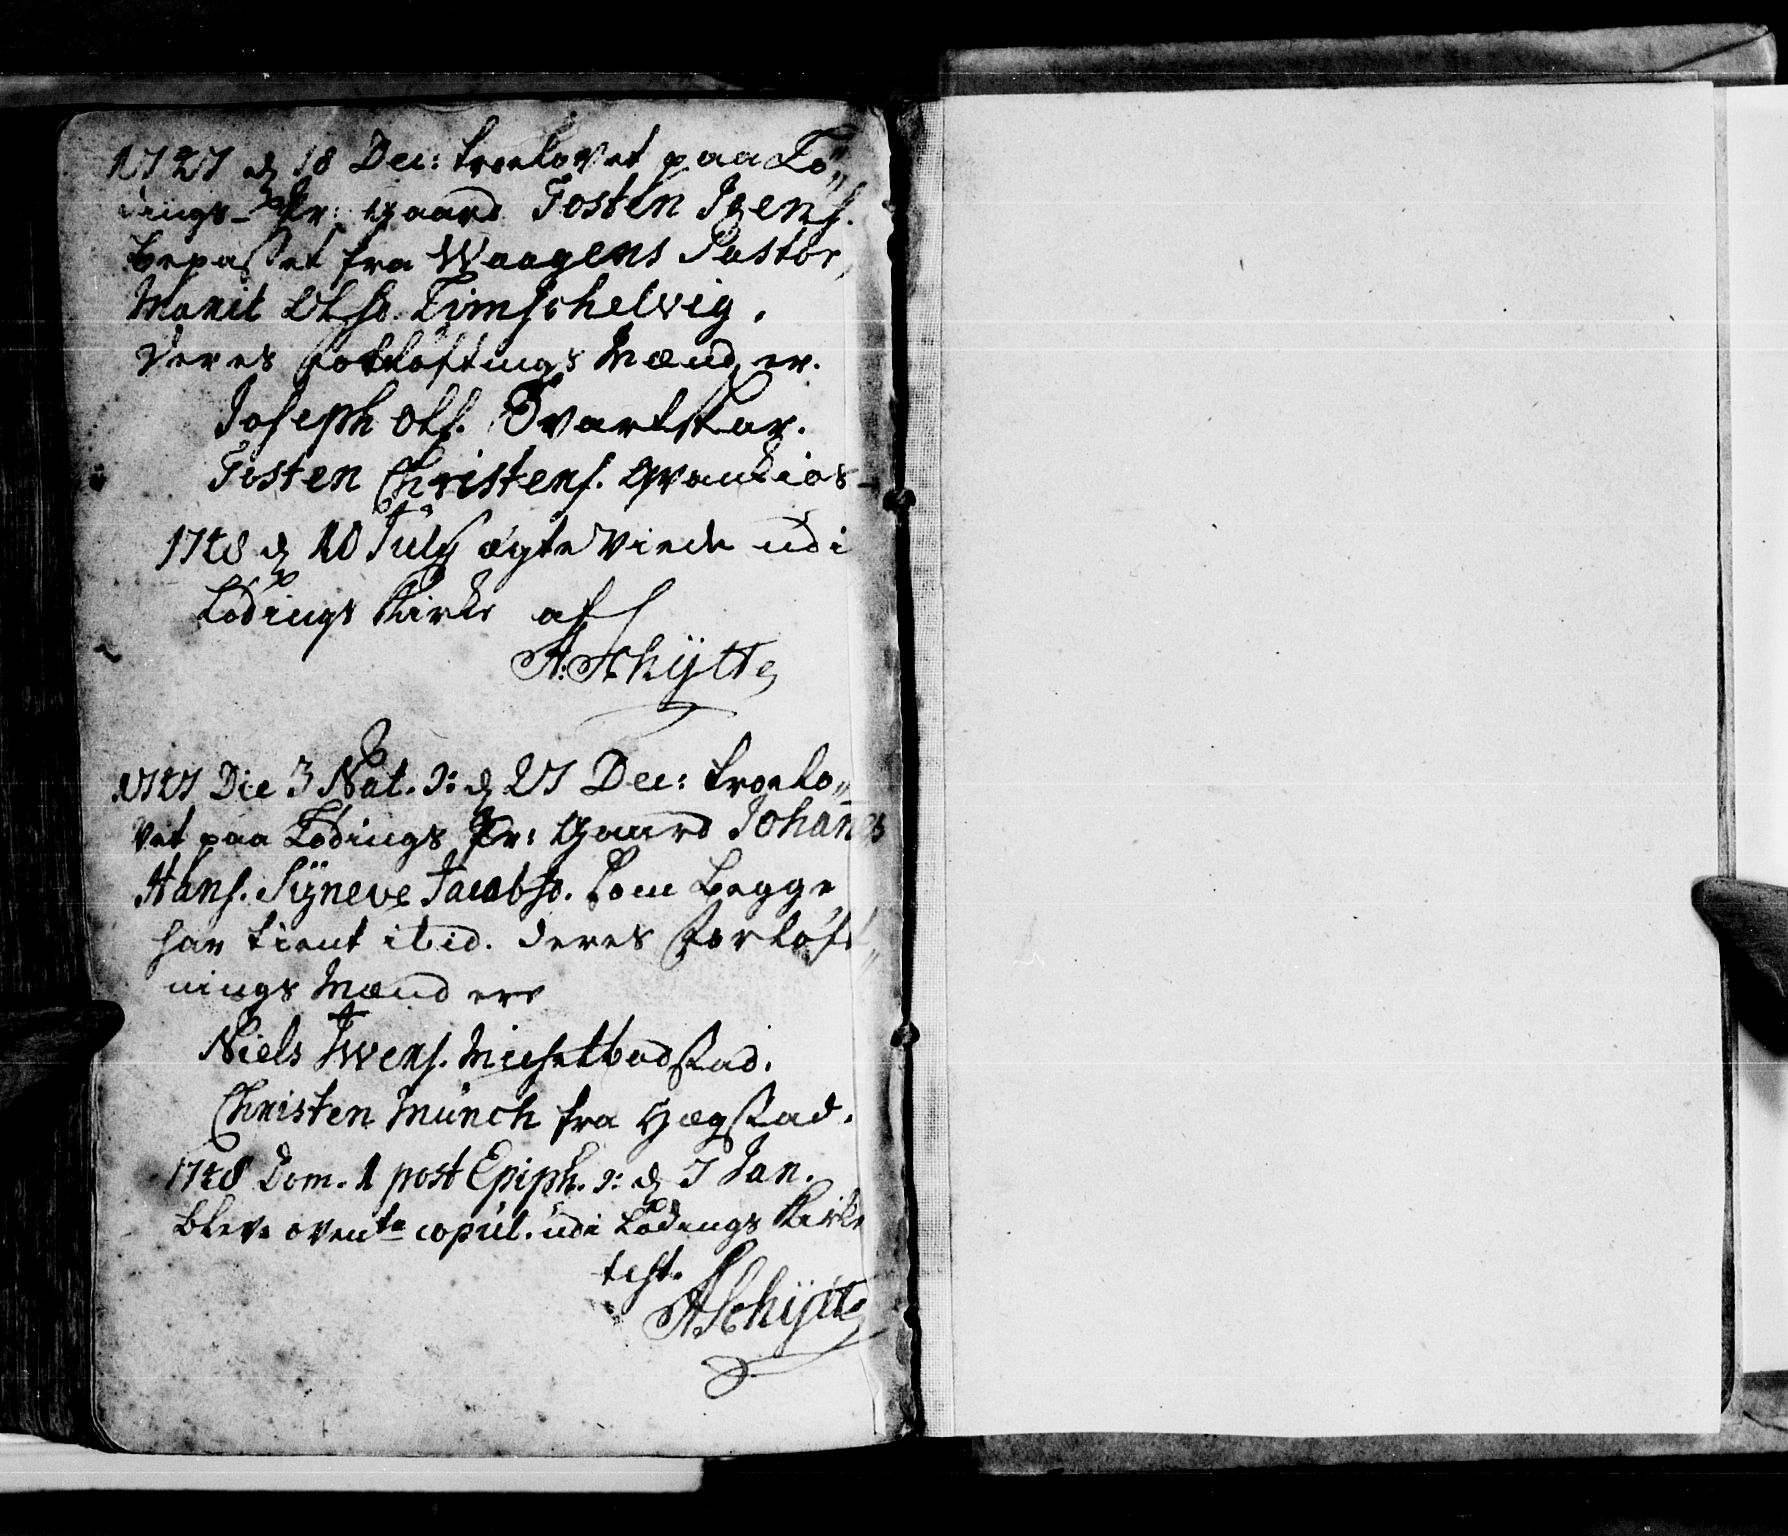 1747 d 18 Dec: troelovet paa Lö„
dings Pr: Gaard Tosten Ivers.
bepasset fra Waagens Pastor,
Marit Olsd. Timschelvig.
Deres forløftings Mænd er.
Joseph Ols. Svartskar.
Tosten Christens. Qvankios
1748 d 10 July ægte Viede udi
Lödings Kirke af
A: Schÿtte
1747 Die 3 Nat. ɔ: d 27 Dec: troelo„
vet paa Lödings Pr: Gaard Johanes
Hans. Sÿneve Jacobsd. som begge
har tient ibid. deres Forløft„
nings Mænd ere
Niels Iwers. Michelbodstad.
Christen Münch fra Hægstad.
1748 Dom. 1 post Epiph. ɔ: d 7 Jan.
bleve ovente copul. udi Lödings Kirke
test.
A Schÿtte